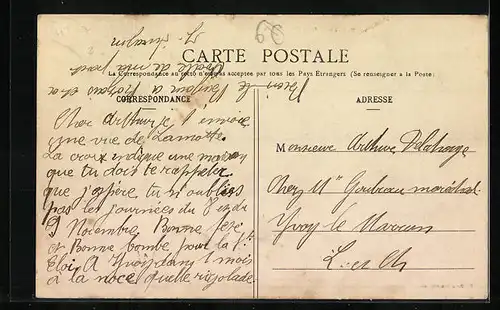 60
CARTE POSTALE
La Correspondance au recto n'est pas acceptée par tous les Pays Etrangers (Se renseigner a la Poste)
CORRESPONDANCE
ADRESSE
Cher Arthur je t'envoie
une vue de Lamotte
La croix indique une maison
que tu dois te rappeler
que j'espère tu n'oublies
pas les journées du 8 et du
9 Novembre. Bonne fête
et Bonne bombe pour la St
Eloi. A Yvoy dans 1 mois
à la noce quelle rigolade.
Monsieur Arthur Delahaye
Chez Mr maréchal
Yvoy le Marron
L. et Ch
Bien le Bonjour à
de ma part